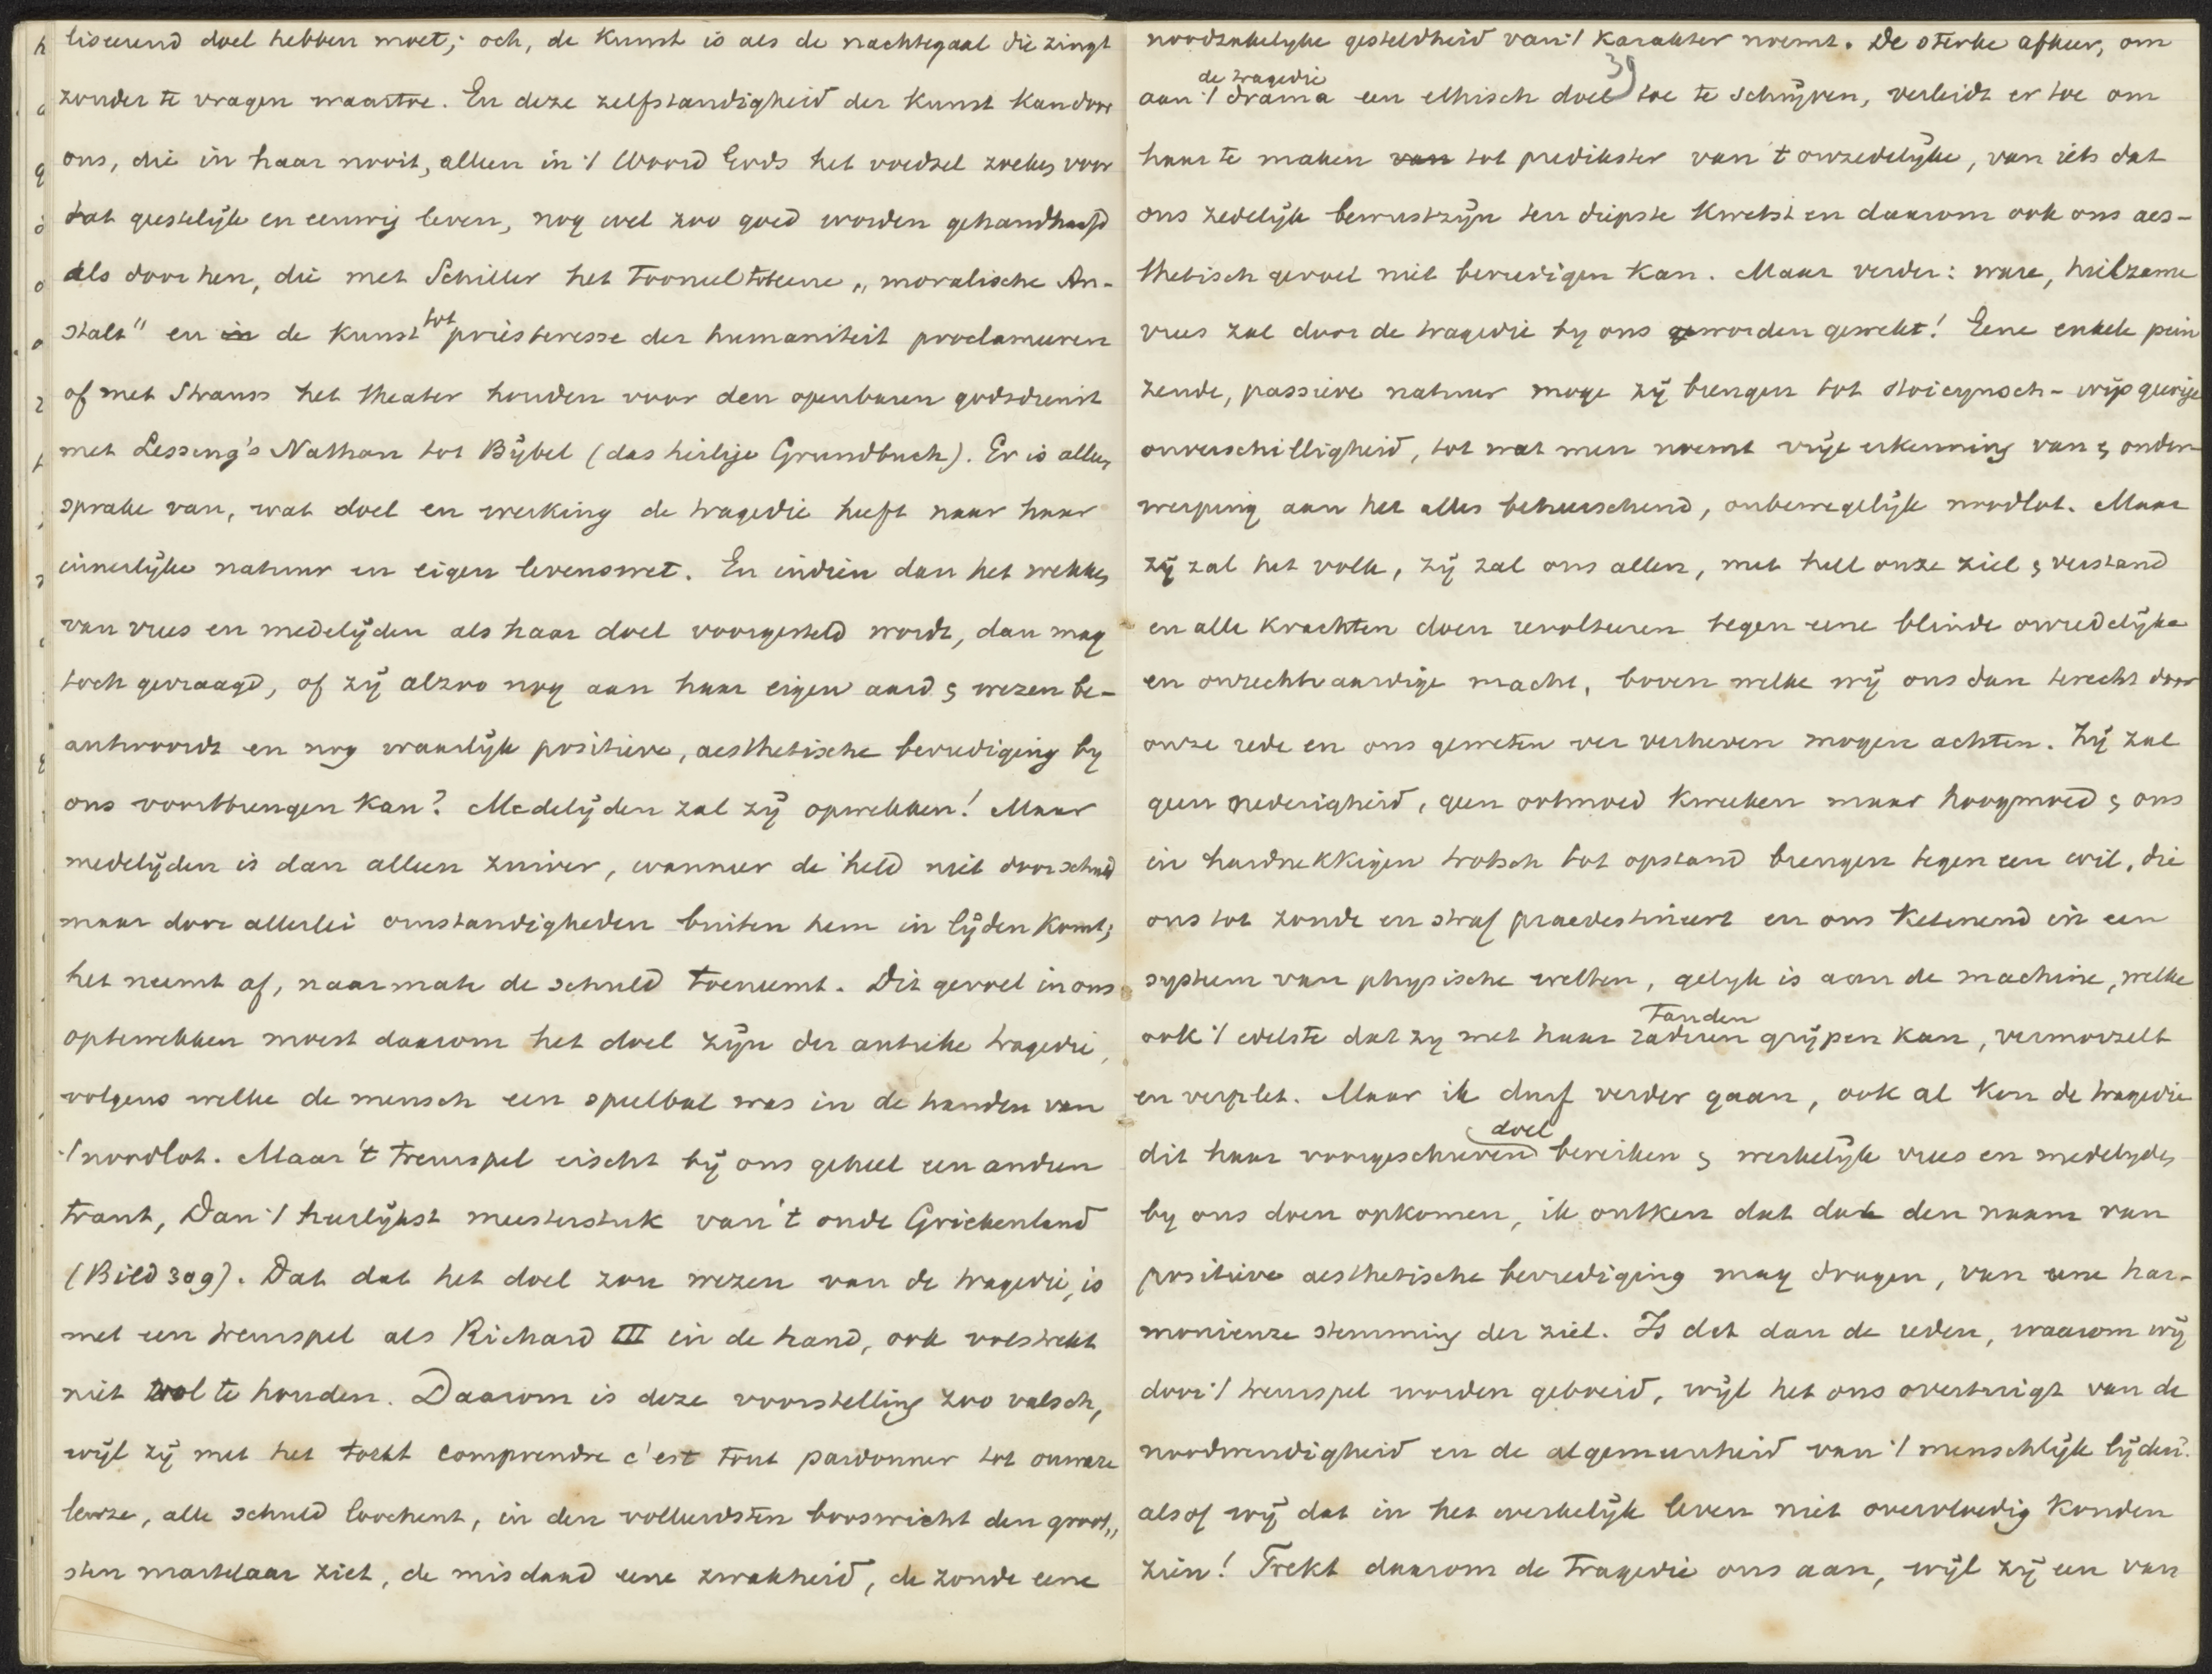 liseerend doel hebben moet; och, de kunst is als de nachtegaal die zingt
zonder te vragen waartoe. En deze zelfstandigheid der kunst kan door
ons, die in haar nooit, alleen in 't Woord Gods het voedsel zoeken voor
dat geestelijk en eeuwig leven, nog wel zoo goed worden gehandhaafd
als door hen, die met Schiller het tooneel tot eene „moralische An-
stalt" en in de kunst tot priesteresse der humaniteit proclameeren
of met Strauss het theater houden voor den openbaren godsdienst
met Lessing's Nathan tot Bijbel (das heilige Grundbuch). Er is alleen
sprake van, wat doel en werking de tragedie heeft naar haar
innerlijke natuur en eigen levenswet. En indien dan het wekken
van vrees en medelijden als haar doel voorgesteld wordt, dan mag
toch gevraagd, of zij alzoo nog aan haar eigen aard & wezen be-
antwoordt en nog waarlijk positieve, aesthetische bevrediging by
ons voortbrengen kan? Medelijden zal zij opwekken! Maar
medelijden is dan alleen zuiver, wanneer de held niet door schuld
maar door allerlei omstandigheden buiten hem in lijden komt;
het neemt af, naarmate de schuld toeneemt. Dit gevoel in ons
optewekken moest daarom het doel zijn der antieke tragedie,
volgens welke de mensch een speelbal was in de handen van
't noodlot. Maar 't treurspel eischt bij ons geheel een andren
trant, Dan 't heerlijkst meesterstuk van 't oude Griekenland
(Bild 309). Dat dat het doel zou wezen van de tragedie, is
met een treurspel als Richard III in de hand, ook volstrekt
niet vol te houden. Daarom is deze voorstelling zoo valsch,
wijl zij met het tout comprendre c'est tout pardonner tot onware
leuze, alle schuld loochent, in den vollendsten booswicht den groot„
sten martelaar ziet, de misdaad eene zwakheid, de zonde eene
noodzakelyke gesteldheid van 't karakter noemt. De sterke afkeer, om
39
de tragedie
aan 't drama een ethisch doel toe te schrijven, verleidt er toe om
haar te maken van tot predikster van 't onzedelijke, van iets dat
ons zedelijk bewustzijn ten diepste kwetst en daarom ook ons aes-
thetisch gevoel niet bevredigen kan. Maar verder: ware, heilzame
vrees zal door de tragedie by ons worden gewekt! Eene enkele pein
zende, passieve natuur moge zij brengen tot stoicynsch-wijsgeerige
onverschilligheid, tot wat men noemt vrije erkenning van & onder
werping aan het alles beheerschend, onbewegelijk noodlot. Maar
zij zal het volk, zij zal ons allen, met heel onze ziel & verstand
en alle krachten doen revolteeren tegen eene blinde onredelijke
en onrechtvaardige macht, boven welke wij ons dan terecht door
onze rede en ons geweten ver verheven mogen achten. Zij zal
geen nederigheid, geen ootmoed kweeken maar hoogmoed & ons
in hardnekkigen trotsch tot opstand brengen tegen een wil, die
ons tot zonde en straf praedestineert en ons ketenend in een
systeem van physische wetten, gelyk is aan de machine, welke
tanden
ook 't edelste dat zy met haar raderen grijpen kan, vermorzelt
en verplet. Maar ik durf verder gaan, ook al kon de tragedie
doel
dit haar voorgeschreven bereiken & werkelijk vrees en medelyden
by ons doen opkomen, ik ontken dat dat den naam van
positieve aesthetische bevrediging mag dragen, van eene har-
monieuze stemming der ziel. Is dat dan de reden, waarom wij
door 't treurspel worden geboeid, wijl het ons overtuigt van de
noodwendigheid en de algemeenheid van 't menschlijk lijden?
alsof wij dat in het werkelijk leven niet overvloedig konden
zien! Trekt daarom de tragedie ons aan, wijl zij een van